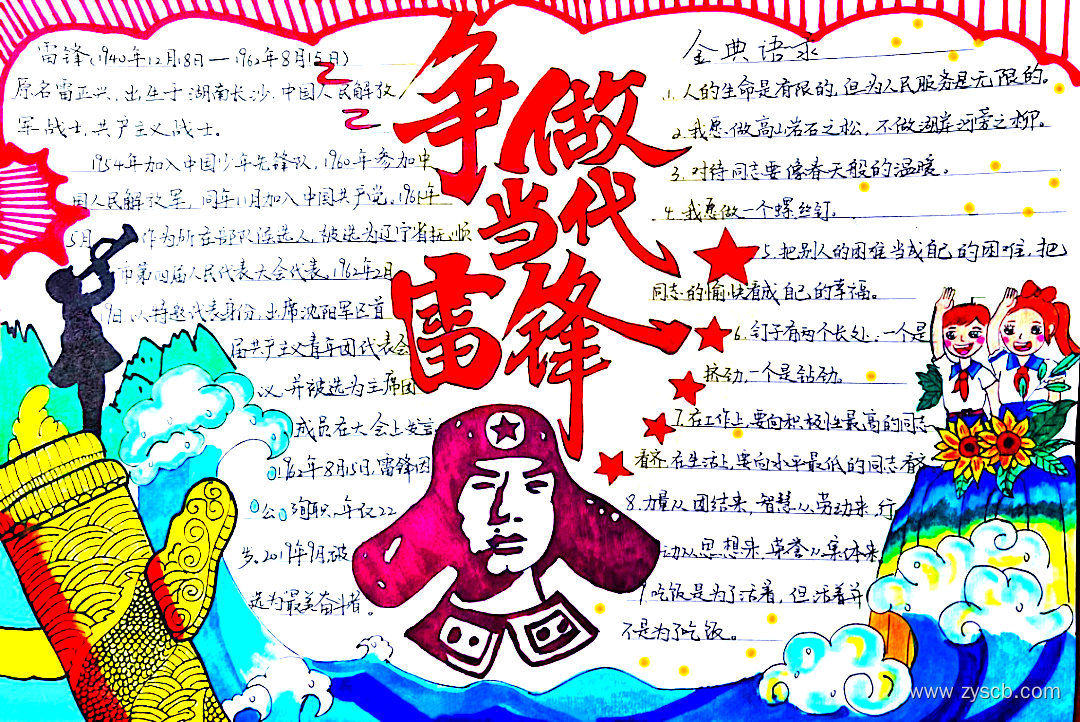 争做
当代
雷锋
雷锋(1940年12月18日—1962年8月15日)
原名雷正兴,出生于湖南长沙,中国人民解放
军战士,共产主义战士。
1954年加入中国少年先锋队,1960年参加中
国人民解放军,同年11月加入中国共产党。1961年
5月 作为所在部队候选人,被选为辽宁省抚顺
市第四届人民代表大会代表,1962年2月
19日以特邀代表身份,出席沈阳军区首
届共产主义青年团代表会
议,并被选为主席团
成员在大会上发言
1962年8月15日,雷锋因
公殉职,年仅22
岁。2019年9月被
选为"最美奋斗者。
金典语录
1.人的生命是有限的,但为人民服务是无限的。
2.我愿做高山岩石之松,不做湖岸河旁之柳。
3.对待同志要像春天般的温暖。
4.我愿做一个螺丝钉。
5.把别人的困难当成自己的困难,把
同志的愉快看成自己的幸福。
6.钉子有两个长处:一个是
挤劲,一个是钻劲。
7.在工作上,要向积极性最高的同志
看齐,在生活上,要向水平最低的同志看齐
8.力量从团结来,智慧从劳动来,行
动从思想来,荣誉从集体来
9.吃饭是为了活着,但活着并
不是为了吃饭。
www.zyscb.com